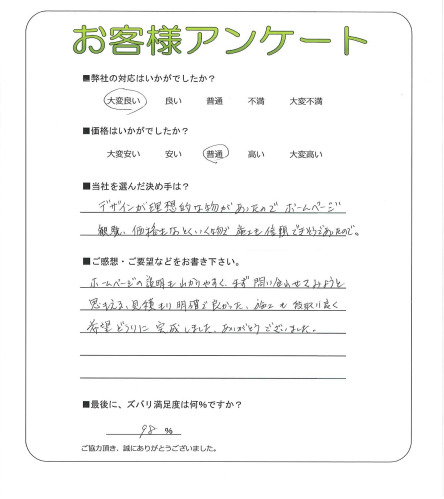 お客様アンケート
■弊社の対応はいかがでしたか？
大変良い 良い 普通 不満 大変不満
■価格はいかがでしたか？
大変安い 安い 普通 高い 大変高い
■当社を選んだ決め手は？
デザインが理想的な物があったので ホームページ
観覧、価格もなっとくいく物で 施工も信頼できそうであったので。
■ご感想・ご要望などをお書き下さい。
ホームページの説明もわかりやすく、まず 問い合わせてみようと
思もえる、見積もり明確で良かった、施工も段取り良く
希望どうりに 完成しました、ありがとうございました。
■最後に、ズバリ満足度は何％ですか？
98 ％
ご協力頂き、誠にありがとうございました。